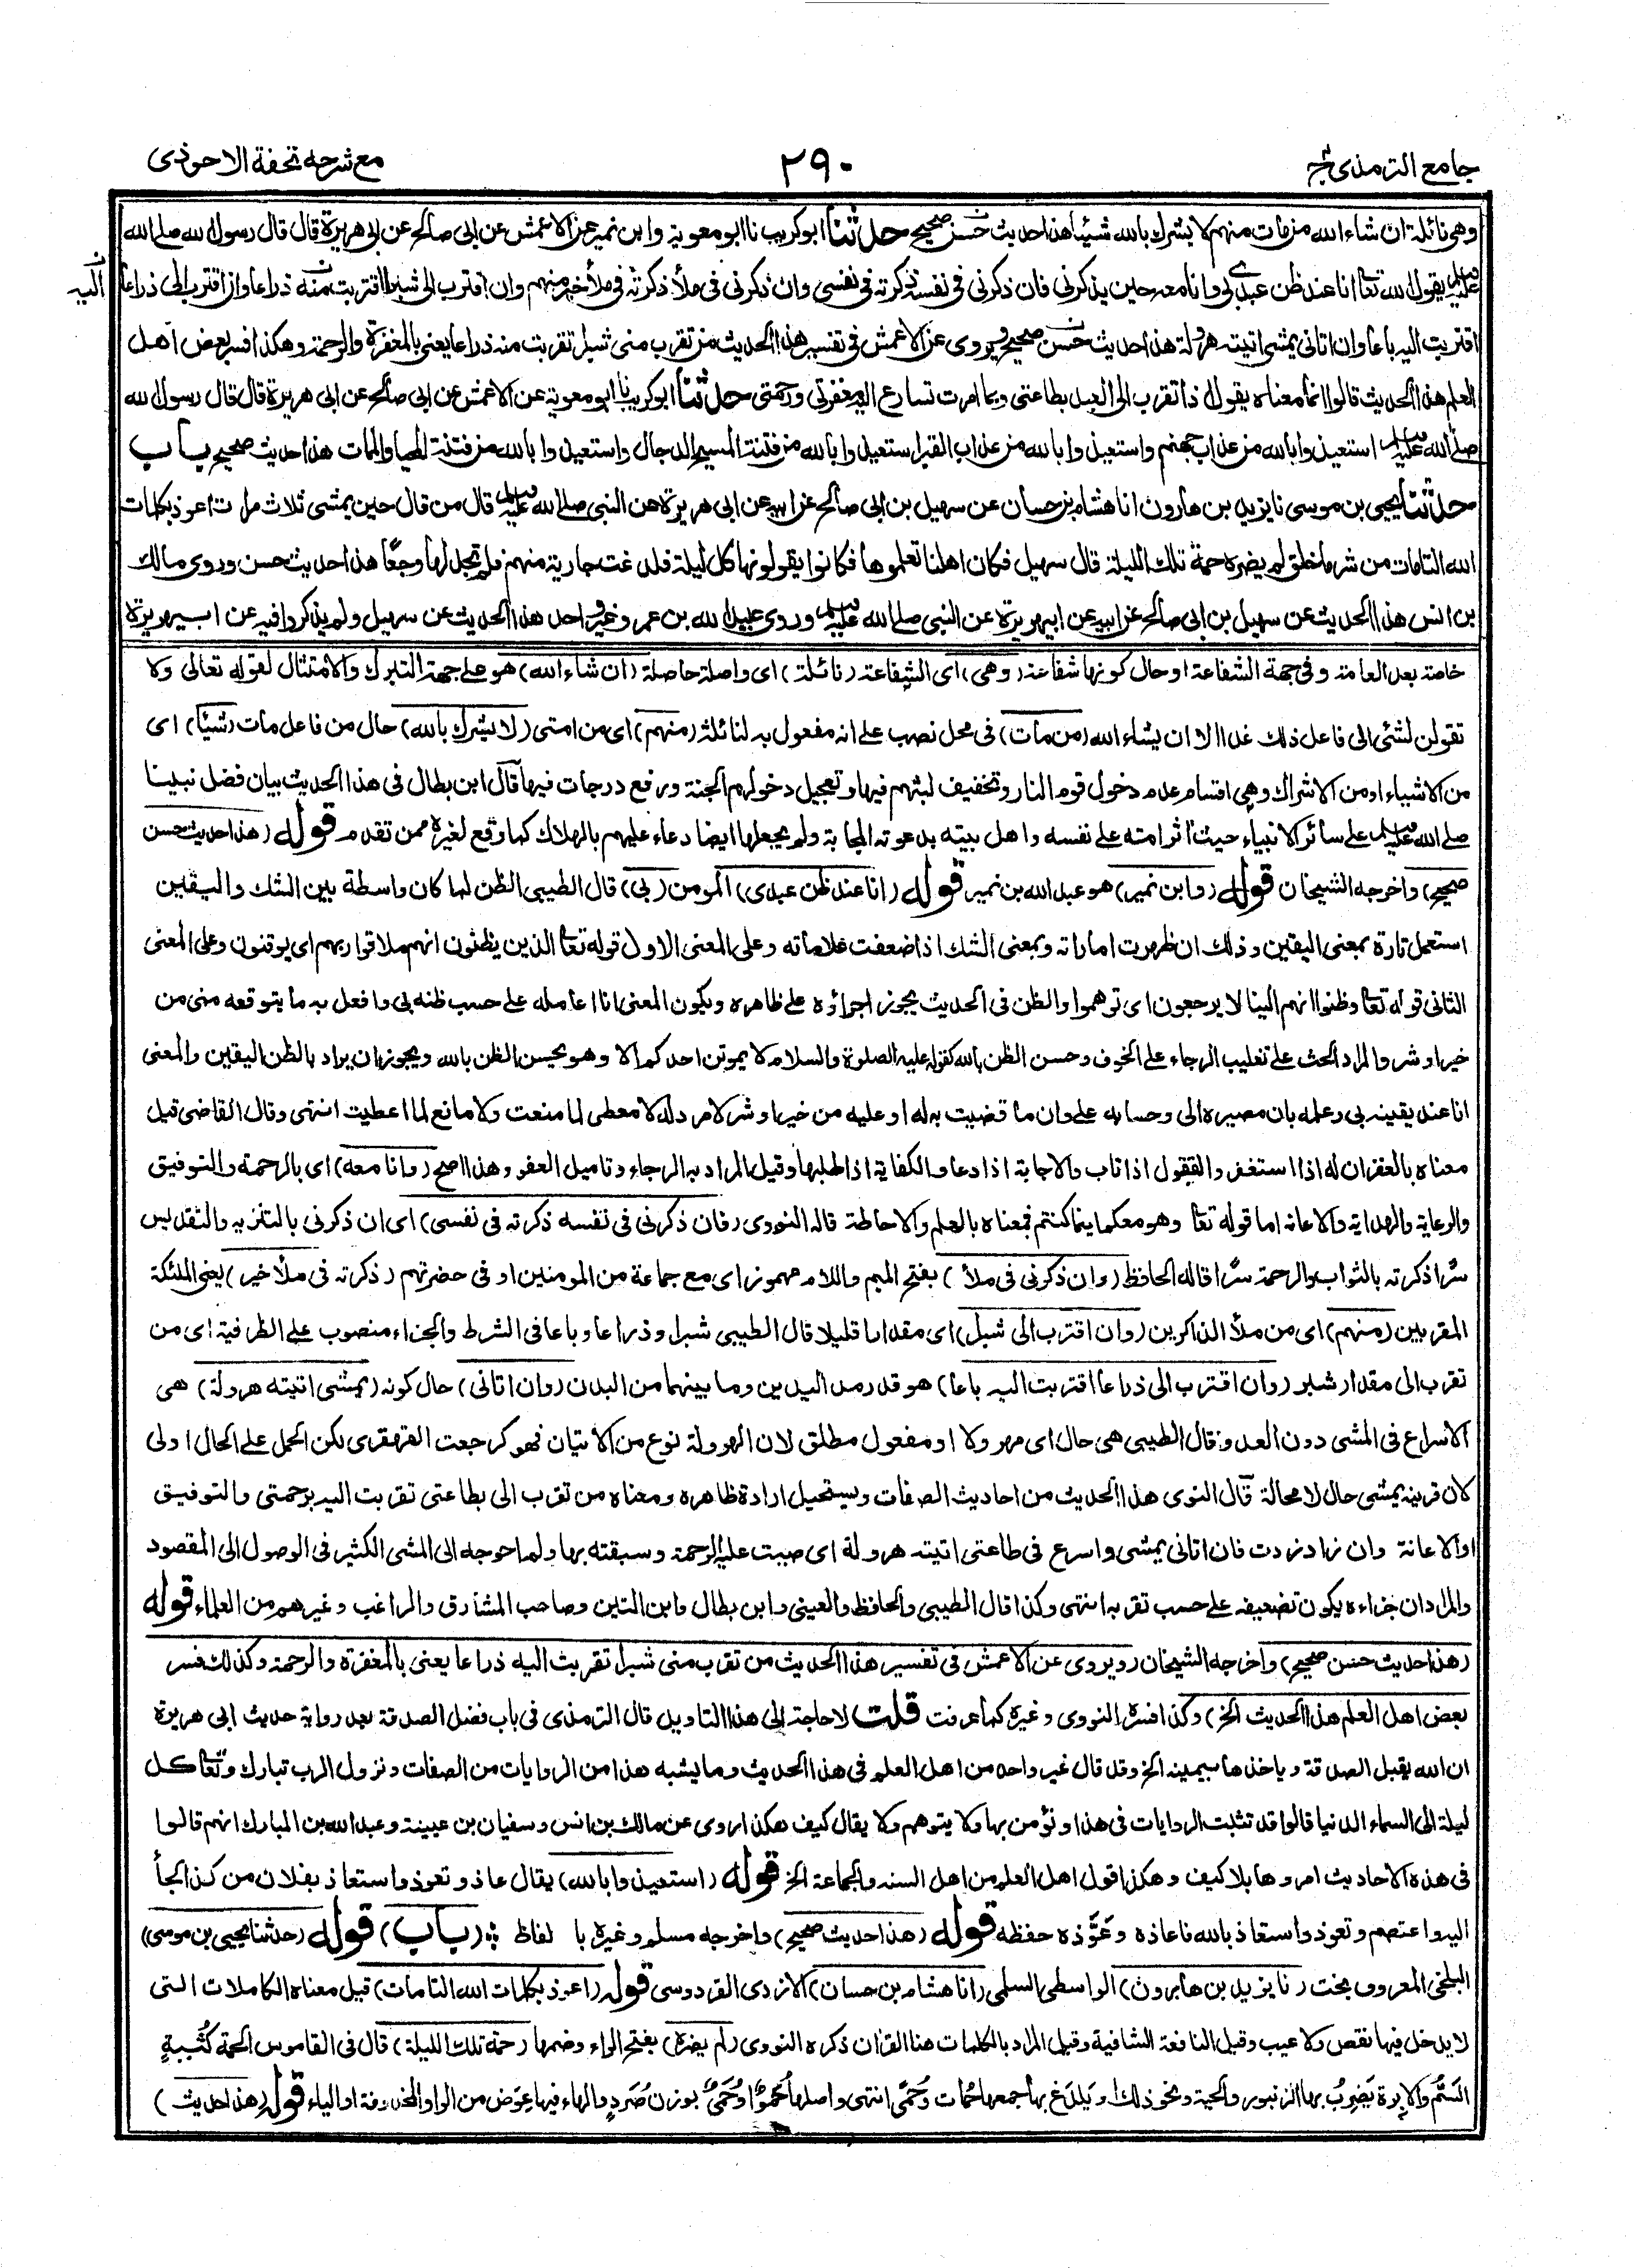 جامع الترمذى ج٤
٢٩٠
مع شرحه تحفة الاحوذى
وهى نائلة ان شاء الله من مات منهم لا يشرك بالله شيئا هذا حديث حسن صحيح حدثنا ابو كريب نا ابو معوية وابن نمير عن الاعمش عن ابى صالح عن ابى هريرة قال قال رسول الله صلى الله
عليه وسلم يقول الله تعالى انا عند ظن عبدى بى وانا معه حين يذكرنى فان ذكرنى فى نفسه ذكرته فى نفسى وان ذكرنى فى ملأ ذكرته فى ملأ خير منهم وان اقترب الى شبرا اقتربت منه ذراعا وان اقترب الى ذراعا
اليه
اقتربت اليه باعا وان اتانى يمشى اتيته هرولة هذا حديث حسن صحيح ويروى عن الاعمش فى تفسير هذا الحديث من تقرب منى شبرا تقربت منه ذراعا يعنى بالمغفرة والرحمة وهكذا فسر بعض اهل
العلم هذا الحديث قالوا انما معناه يقول اذا تقرب الى العبد بطاعتى وبما امرت تسارع اليه مغفرتى ورحمتى حدثنا ابو كريب نا ابو معوية عن الاعمش عن ابى صالح عن ابى هريرة قال قال رسول الله
صلى الله عليه وسلم استعيذوا بالله من عذاب جهنم واستعيذوا بالله من عذاب القبر استعيذوا بالله من فتنة المسيح الدجال واستعيذوا بالله من فتنة المحيا والممات هذا حديث صحيح باب
حدثنا يحيى بن موسى نا يزيد بن هارون انا هشام بن حسان عن سهيل بن ابى صالح عن ابيه عن ابى هريرة عن النبى صلى الله عليه وسلم قال من قال حين يمشى ثلاث مرات اعوذ بكلمات
الله التامات من شر ما خلق لم يضره حمة تلك الليلة قال سهيل فكان اهلنا تعلموها فكانوا يقولونها كل ليلة فلدغت جارية منهم فلم تجد لها وجعا هذا حديث حسن وروى مالك
بن انس هذا الحديث عن سهيل بن ابى صالح عن ابيه عن ابى هريرة عن النبى صلى الله عليه وسلم وروى عبيد الله بن عمر وغير واحد هذا الحديث عن سهيل ولم يذكروا فيه عن ابى هريرة
خاصة بعد العامة وفى جهة الشفاعة او حال كونها شفاعة (وهى) اى الشفاعة (نائلة) اى واصلة حاصلة (ان شاء الله) هو على جهة التبرك والامتثال لقوله تعالى ولا
تقولن لشئ انى فاعل ذلك غدا الا ان يشاء الله (من مات) فى محل نصب على انه مفعول به لنائلة (منهم) اى من امتى (لا يشرك بالله) حال من فاعل مات (شيئا) اى
من الاشياء او من الاشراك وهى اقسام عدم دخول قوم النار وتخفيف لبثهم فيها وتعجيل دخولهم الجنة ورفع درجات فيها قال ابن بطال فى هذا الحديث بيان فضل نبينا
صلى الله عليه وسلم على سائر الانبياء حيث اثر امته على نفسه واهل بيته بدعوته المجابة ولم يجعلها ايضا دعاء عليهم بالهلاك كما وقع لغيره ممن تقدم قوله (هذا حديث حسن
صحيح) واخرجه الشيخان قوله (وابن نمير) هو عبد الله بن نمير قوله (انا عند ظن عبدى) المومن (بى) قال الطيبى الظن لما كان واسطة بين الشك واليقين
استعمل تارة بمعنى اليقين وذلك ان ظهرت اماراته وبمعنى الشك اذا ضعفت علاماته وعلى المعنى الاول قوله تعالى الذين يظنون انهم ملاقوا ربهم اى يوقنون وعلى المعنى
الثانى قوله تعالى وظنوا انهم الينا لا يرجعون اى توهموا والظن فى الحديث يجوز اجراؤه على ظاهره ويكون المعنى انا اعامله على حسب ظنه بى وافعل به ما يتوقعه منى من
خير او شر والمراد الحث على تغليب الرجاء على الخوف وحسن الظن بالله كقوله عليه الصلوة والسلام لا يموتن احدكم الا وهو يحسن الظن بالله ويجوز ان يراد بالظن اليقين والمعنى
انا عند يقينه بى وعلمه بان مصيره الى وحسابه على وان ما قضيت به له او عليه من خير او شر لا مرد له لا معطى لما منعت ولا مانع لما اعطيت انتهى وقال القاضى قيل
معناه بالغفران له اذا استغفر والقبول اذا تاب والاجابة اذا دعا والكفاية اذا طلبها وقيل المراد به الرجاء وتاميل العفو وهذا اصح (وانا معه) اى بالرحمة والتوفيق
والرعاية والهداية والاعانة اما قوله تعالى وهو معكم اينما كنتم فمعناه بالعلم والاحاطة قاله النووى (فان ذكرنى فى نفسه ذكرته فى نفسى) اى ان ذكرنى بالتنزيه والتقديس
سرا ذكرته بالثواب والرحمة سرا قاله الحافظ (وان ذكرنى فى ملأ) بفتح الميم واللام مهموز اى مع جماعة من المومنين او فى حضرتهم (ذكرته فى ملأ خير) يعنى الملئكة
المقربين (منهم) اى من ملأ الذاكرين (وان اقترب الى شبرا) اى مقدارا قليلا قال الطيبى شبرا وذراعا وباعا فى الشرط والجزاء منصوب على الظرفية اى من
تقرب الى مقدار شبر (وان اقترب الى ذراعا اقتربت اليه باعا) هو قدر مد اليدين وما بينهما من البدن (وان اتانى) حال كونه (يمشى اتيته هرولة) هى
الاسراع فى المشى دون العدو وقال الطيبى هى حال اى مهرولا او مفعول مطلق لان الهرولة نوع من الاتيان فهو كرجعت القهقرى لكن الحمل على الحال اولى
لان قرينه يمشى حال لا محالة قال النووى هذا الحديث من احاديث الصفات ويستحيل ارادة ظاهره ومعناه من تقرب الى بطاعتى تقربت اليه برحمتى والتوفيق
او الاعانة وان زاد زدت فان اتانى يمشى واسرع فى طاعتى اتيته هرولة اى صببت عليه الرحمة وسبقته بها ولم احوجه الى المشى الكثير فى الوصول الى المقصود
والمراد ان جزاءه يكون تضعيفه على حسب تقربه انتهى وكذا قال الطيبى والحافظ والعينى وابن بطال وابن التين وصاحب المشارق والراغب وغيرهم من العلماء قوله
(هذا حديث حسن صحيح) واخرجه الشيخان (ويروى عن الاعمش فى تفسير هذا الحديث من تقرب منى شبرا تقربت اليه ذراعا يعنى بالمغفرة والرحمة وكذلك فسر
بعض اهل العلم هذا الحديث الخ) وكذا فسره النووى وغيره كما عرفت قلت لا حاجة الى هذا التاويل قال الترمذى فى باب فضل الصدقة بعد رواية حديث ابى هريرة
ان الله يقبل الصدقة وياخذها بيمينه الخ وقد قال غير واحد من اهل العلم فى هذا الحديث وما يشبه هذا من الروايات من الصفات ونزول الرب تبارك وتعالى كل
ليلة الى السماء الدنيا قالوا قد تثبت الروايات فى هذا ونؤمن بها ولا يتوهم ولا يقال كيف هكذا روى عن مالك بن انس وسفيان بن عيينة وعبد الله بن المبارك انهم قالوا
فى هذه الاحاديث امروها بلا كيف وهكذا قول اهل العلم من اهل السنه والجماعة الخ قوله (استعيذوا بالله) يقال عاذ وتعوذ واستعاذ بفلان من كذا لجأ
اليه واعتصم وتعوذ واستعاذ بالله فاعاذه وعوّذه حفظه قوله (هذا حديث صحيح) واخرجه مسلم وغيره با لفاظ (باب) قوله (حدثنا يحيى بن موسى)
البلخى المعروف بخت (نا يزيد بن هارون) الواسطى السلمى (انا هشام بن حسان) الازدى القردوسى قوله (اعوذ بكلمات الله التامات) قيل معناه الكاملات التى
لا يدخل فيها نقص ولا عيب وقيل النافعة الشافية وقيل المراد بالكلمات هنا القران ذكره النووى (لم يضره) بفتح الراء وضمها (حمة تلك الليلة) قال فى القاموس الحمة كثُبةٍ
السَّمُّ والابرة يَضرِبُ بها الزنبور والحية ونحو ذلك او يَلدَغ بها جمعها حُمات وحُمَى انتهى واصلها حُمَوٌ او حُمَىٌ بوزن صُرَدٍ والهاء فيها عِوَض من الواو المحذوفة او الياء قوله (هذا حديث)